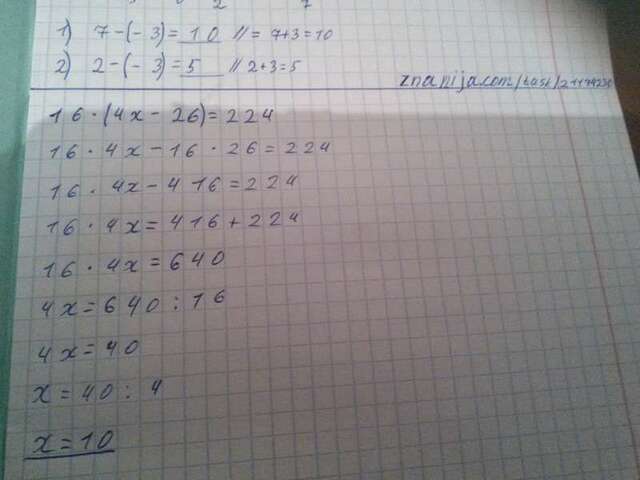 2 7
1) 7-(-3)= 10 //= 7+3=10
2) 2-(-3)=5 // 2+3=5
znanija.com/task/
16·(4x-26)=224
16·4x-16·26=224
16·4x-416=224
16·4x=416+224
16·4x=640
4x=640:16
4x=40
x=40:4
x=10